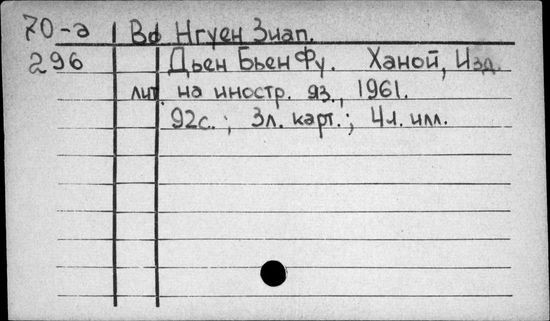 70-а Во Нгуен Зиап.
296 Дьен Бьен Фу. Ханой, Изд.
лит. на иностр. яз., 1961.
92с.; 3л. карт.; 4л. илл.